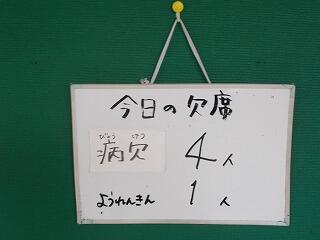 今日の欠席
びょう けつ
病欠 4人
ようれんきん 1人